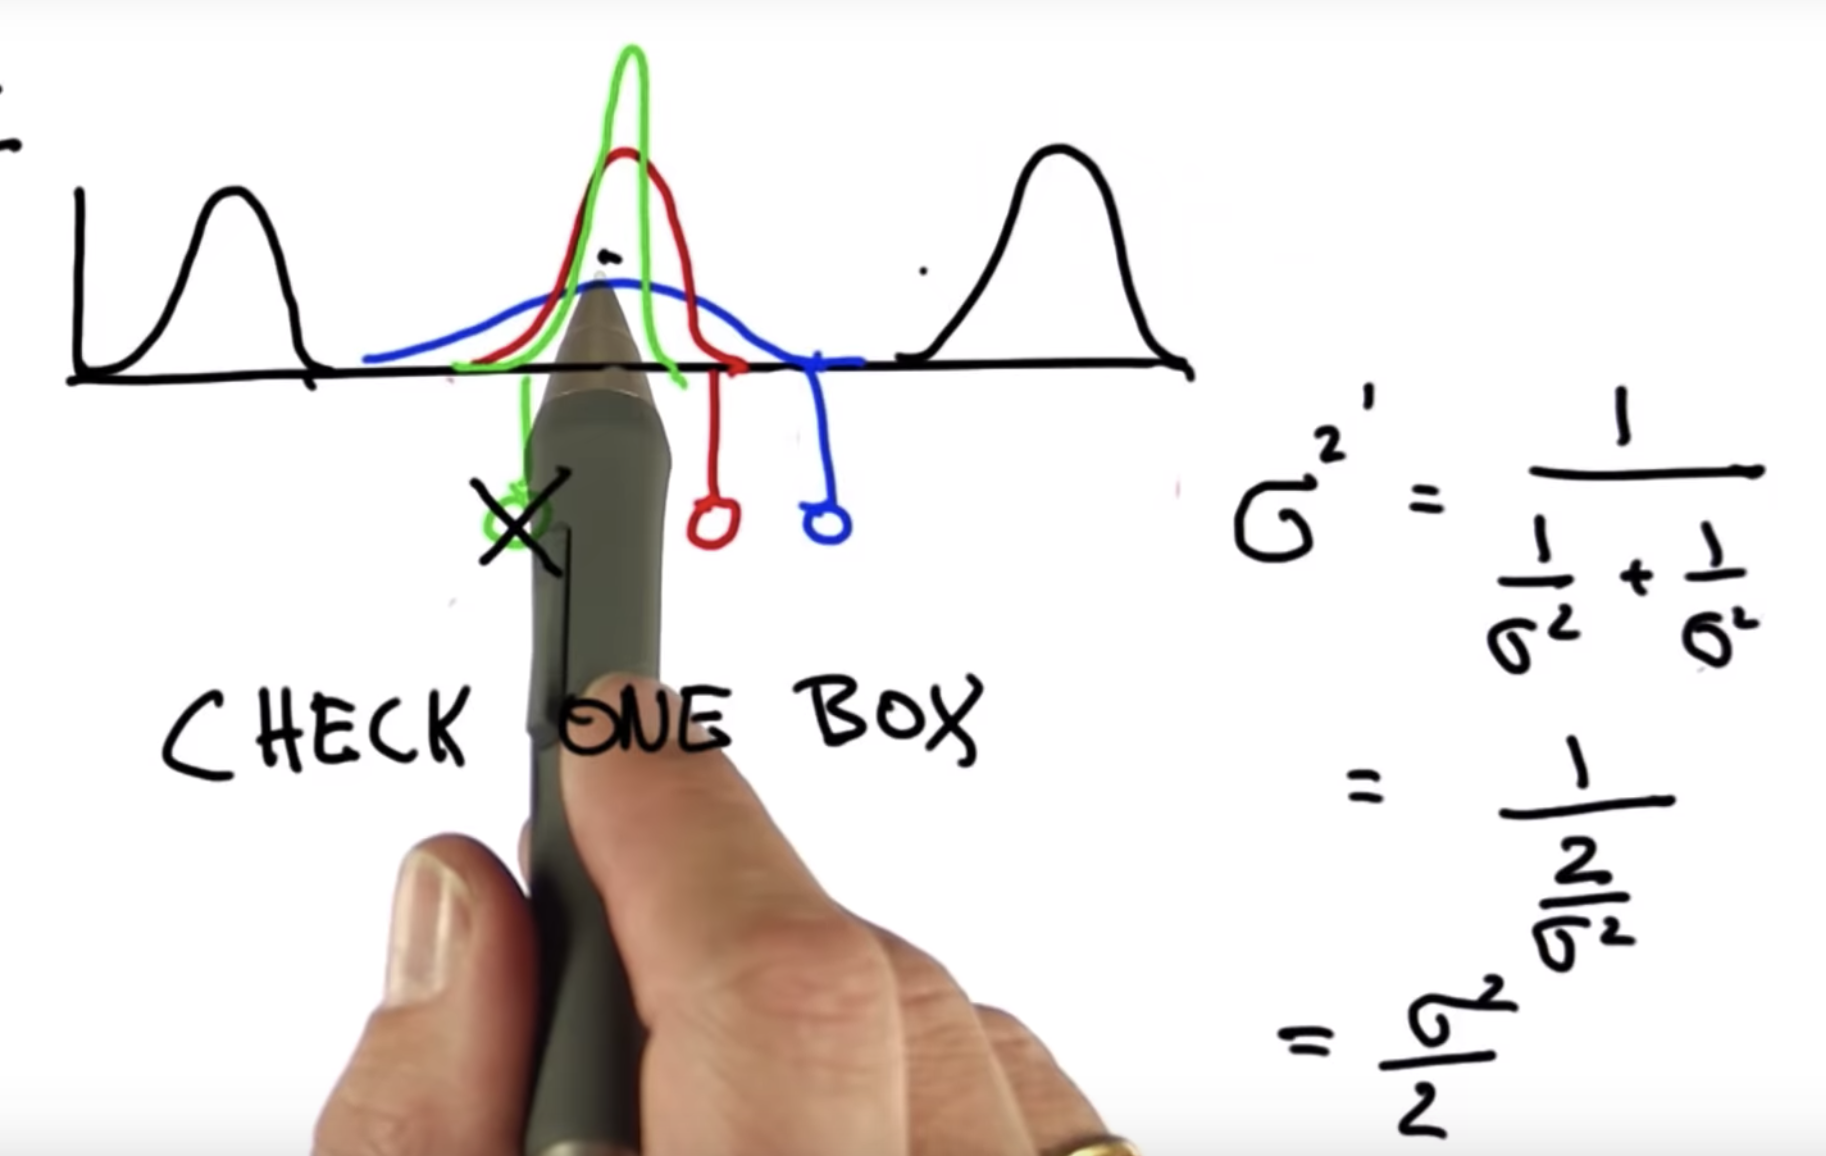 CHECK ONE BOX
σ²' = 1 / (1/σ² + 1/σ²)
= 1 / (2/σ²)
= σ²/2